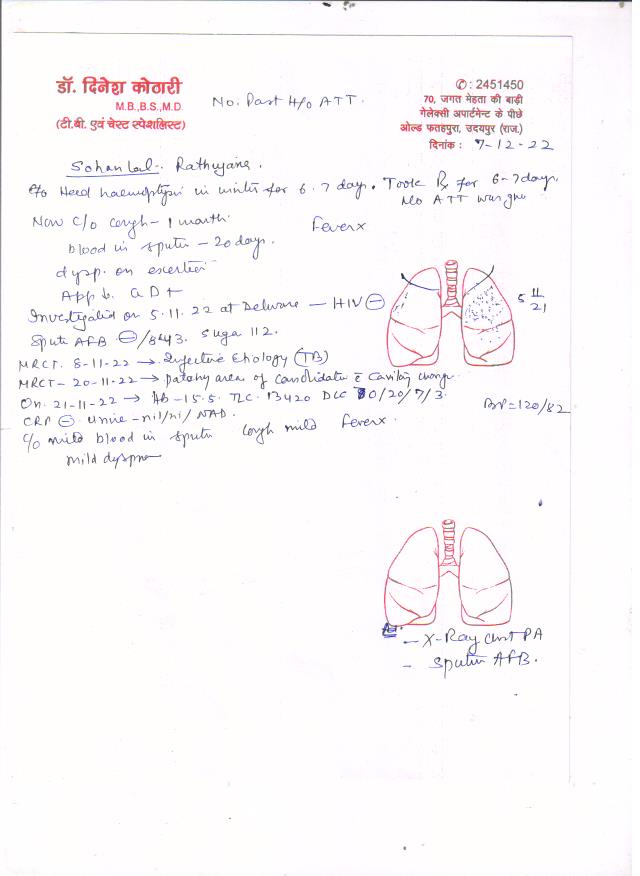 डॉ. दिनेश कोठारी
M.B.,B.S.,M.D.
(टी.बी. एवं चेस्ट स्पेशलिस्ट)
No. Past H/o ATT.
✆: 2451450
70, जगत मेहता की बाड़ी
गेलेक्सी अपार्टमेन्ट के पीछे
ओल्ड फतहपुरा, उदयपुर (राज.)
दिनांक : 7-12-22
Sohan Lal.
haemoptysis in winter for 6-7 days. Took Rx for 6-7 days.
No ATT was
Now c/o cough - 1 month. Fever x
blood in sputum - 20 days.
dysp. on exertion
App
Investigated on 5.11.22 at - HIV ⊖
Sputum AFB ⊖ 112.
11
21
MRCT. 8-11-22 → Infective Etiology (TB)
MRCT - 20-11-22 → patchy area of
On. 21-11-22 → Hb - 15.5. TLC. 13420 DLC /20/7/3.
BP = 120/82
CRP ⊖ Urine - nil/nil/NAD.
c/o mild blood in sputum cough mild Fever x.
mild
- X-Ray chest PA
- Sputum AFB.